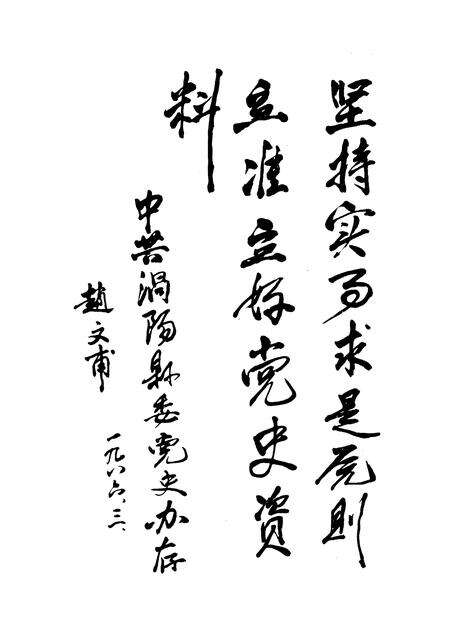 坚持实事求是原则
准立好党史资
料
中共涡陽縣委党史办存
趙文甫
一九八六、三、